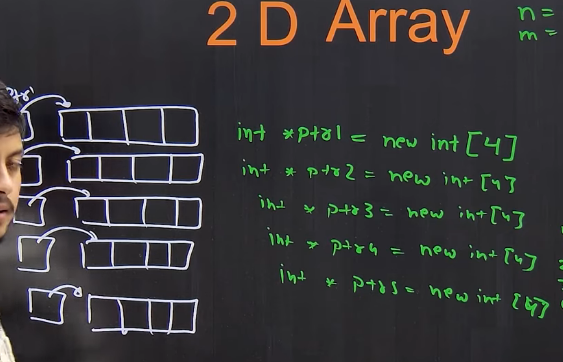 2 D Array
n =
m =
ptr1
int *ptr1 = new int [4]
int * ptr2 = new int [4]
int * ptr3 = new int [4]
int * ptr4 = new int [4]
int * ptr5 = new int [4]